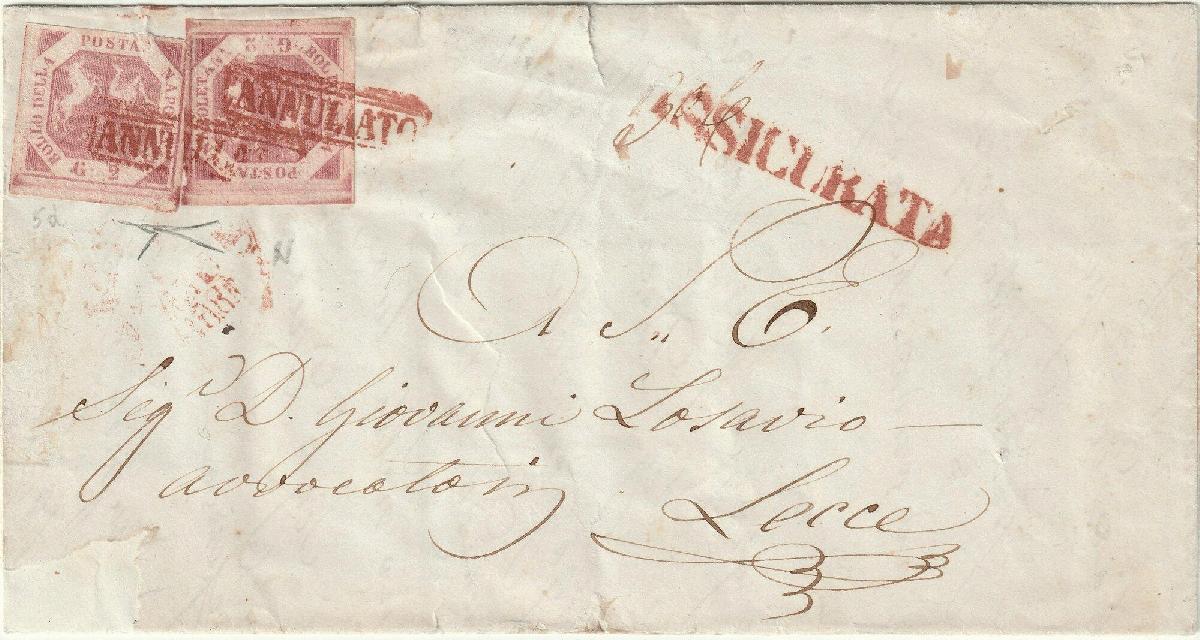 POSTA NAPOLETANA BOLLO DELLA G. 2
POSTA NAPOLETANA BOLLO G. 2
ANNULLATO
ANNULLATO
ASSICURATA
52
N
A S. E.
Sigr D. Giovanni Losavio —
avvocato in
Lecce